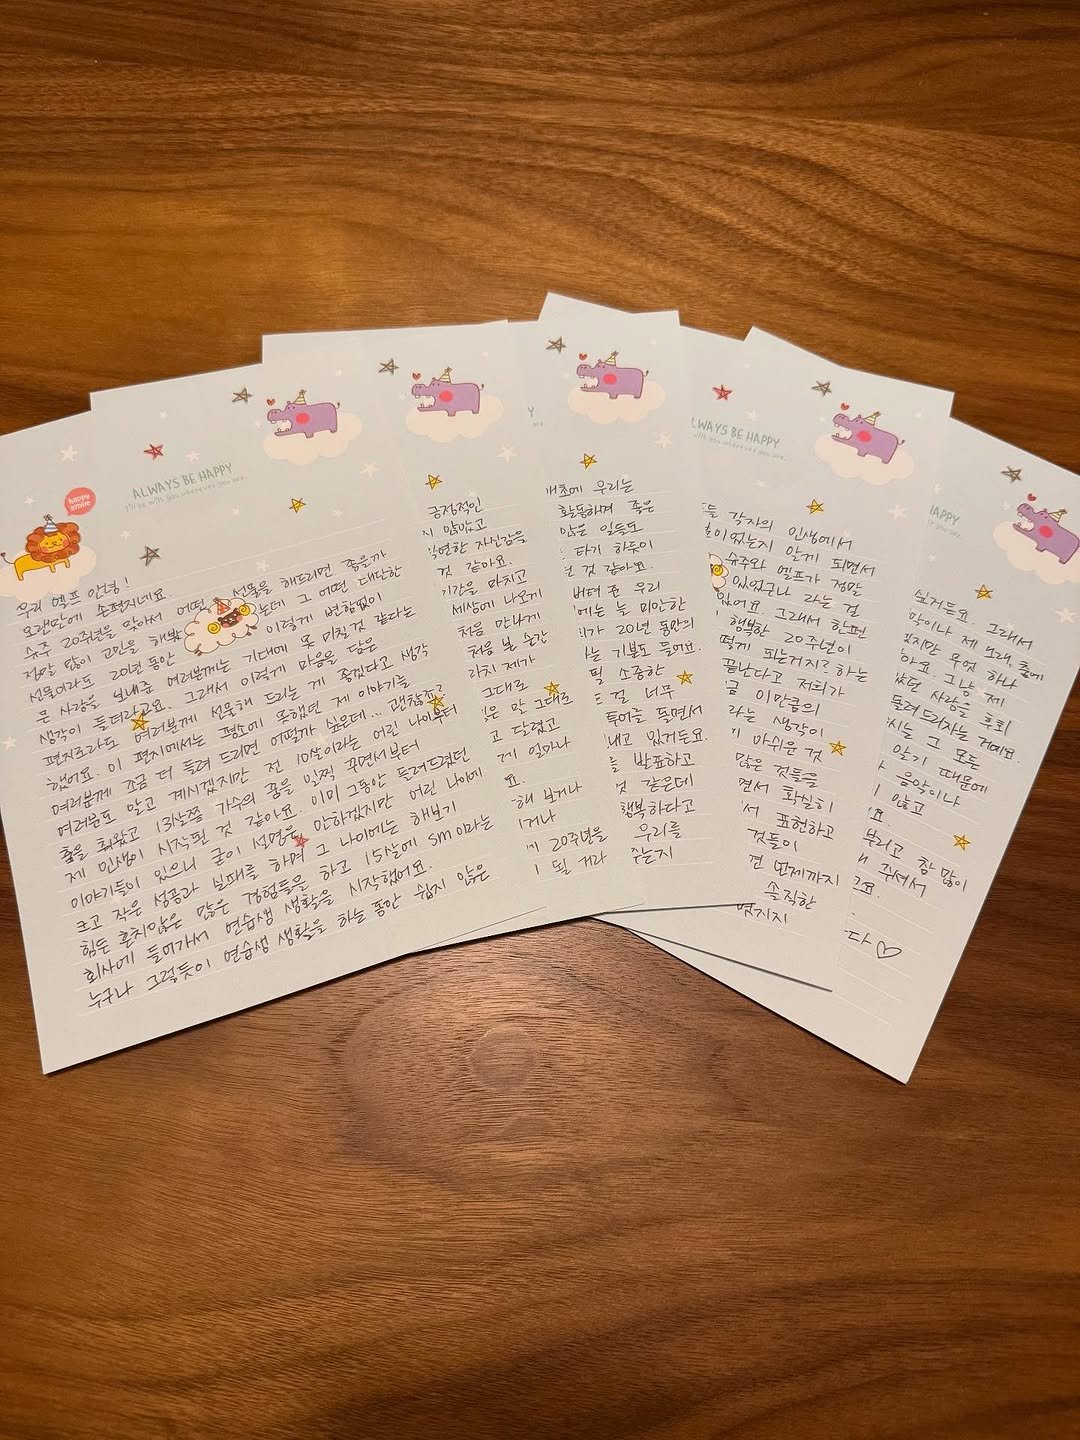 happy smile
ALWAYS BE HAPPY
I'll be with you wherever you are...
우리 엘프 안녕!
오랜만에 손편지네요.
슈주 20주년을 맞아서 어떤 선물을 해드리면 좋을까
정말 많이 고민을 해봤는데 그 어떤 대단한
선물이라도 20년 동안 이렇게 변함없이
큰 사랑을 보내준 여러분께는 기대에 못 미칠것 같다는
생각이 들더라고요. 그래서 이렇게 마음을 담은
편지로라도 여러분께 선물해 드리는 게 좋겠다고 생각
했어요. 이 편지에서는 평소에 못했던 제 이야기들
여러분께 조금 더 들려 드리면 어떨까 싶은데... 괜찮죠?
여러분도 알고 계시겠지만 전 10살이라는 어린 나이부터
춤을 춰왔고 13살쯤 가수의 꿈을 일찍 꾸면서부터
제 인생이 시작된 것 같아요. 이미 그동안 들려드렸던
이야기들이 있으니 굳이 설명은 안하겠지만 어린 나이에
크고 작은 성공과 실패를 하며 그 나이에는 해보기
힘든 흔치않은 많은 경험들을 하고 15살에 SM이라는
회사에 들어가서 연습생 생활을 시작했어요.
누구나 그렇듯이 연습생 생활을 하는 동안 쉽지 않은
긍정적인
지 않았고
막연한 자신감을
것 같아요.
기간을 마치고
세상에 나오게
처음 만나게
처음 본 순간
제가
그대로
말 그대로
고 달렸고
게 얼마나
요.
해 보거나
거나
20주년을
될 거라
우리는
활동하며 좋은
않은 일들도
타기 하듯이
것 같아요.
버텨 준 우리
에는 늘 미안한
가 20년 동안의
는 기분도 들어요.
필 소중한
걸 너무
투어를 돌면서
내고 있거든요.
발표하고
것 같은데
행복하다고
우리를
주는지
ALWAYS BE HAPPY
with you wherever you are...
각자의 인생에서
있는지 알게 되면서
슈주와 엘프가 정말
있었구나 라는 걸
있어요. 그래서 한편
행복한 20주년이
떻게 되는거지? 하는
끝난다고 저희가
이만큼의
라는 생각이
아쉬운 것
많은 것들을
면서 확실히
서 표현하고
것들이
언제까지
솔직한
HAPPY
you are...
싶거든요. 그래서
악이나 제 노래, 춤에
지만 무엇 하나
아요. 그냥 제
사람을 후회
들려 드리자는 거예요
시는 그 모든
알기 때문에
음악이나
않고
요.
부리고 참 많이
내 주셔서
고요.
다 ♡